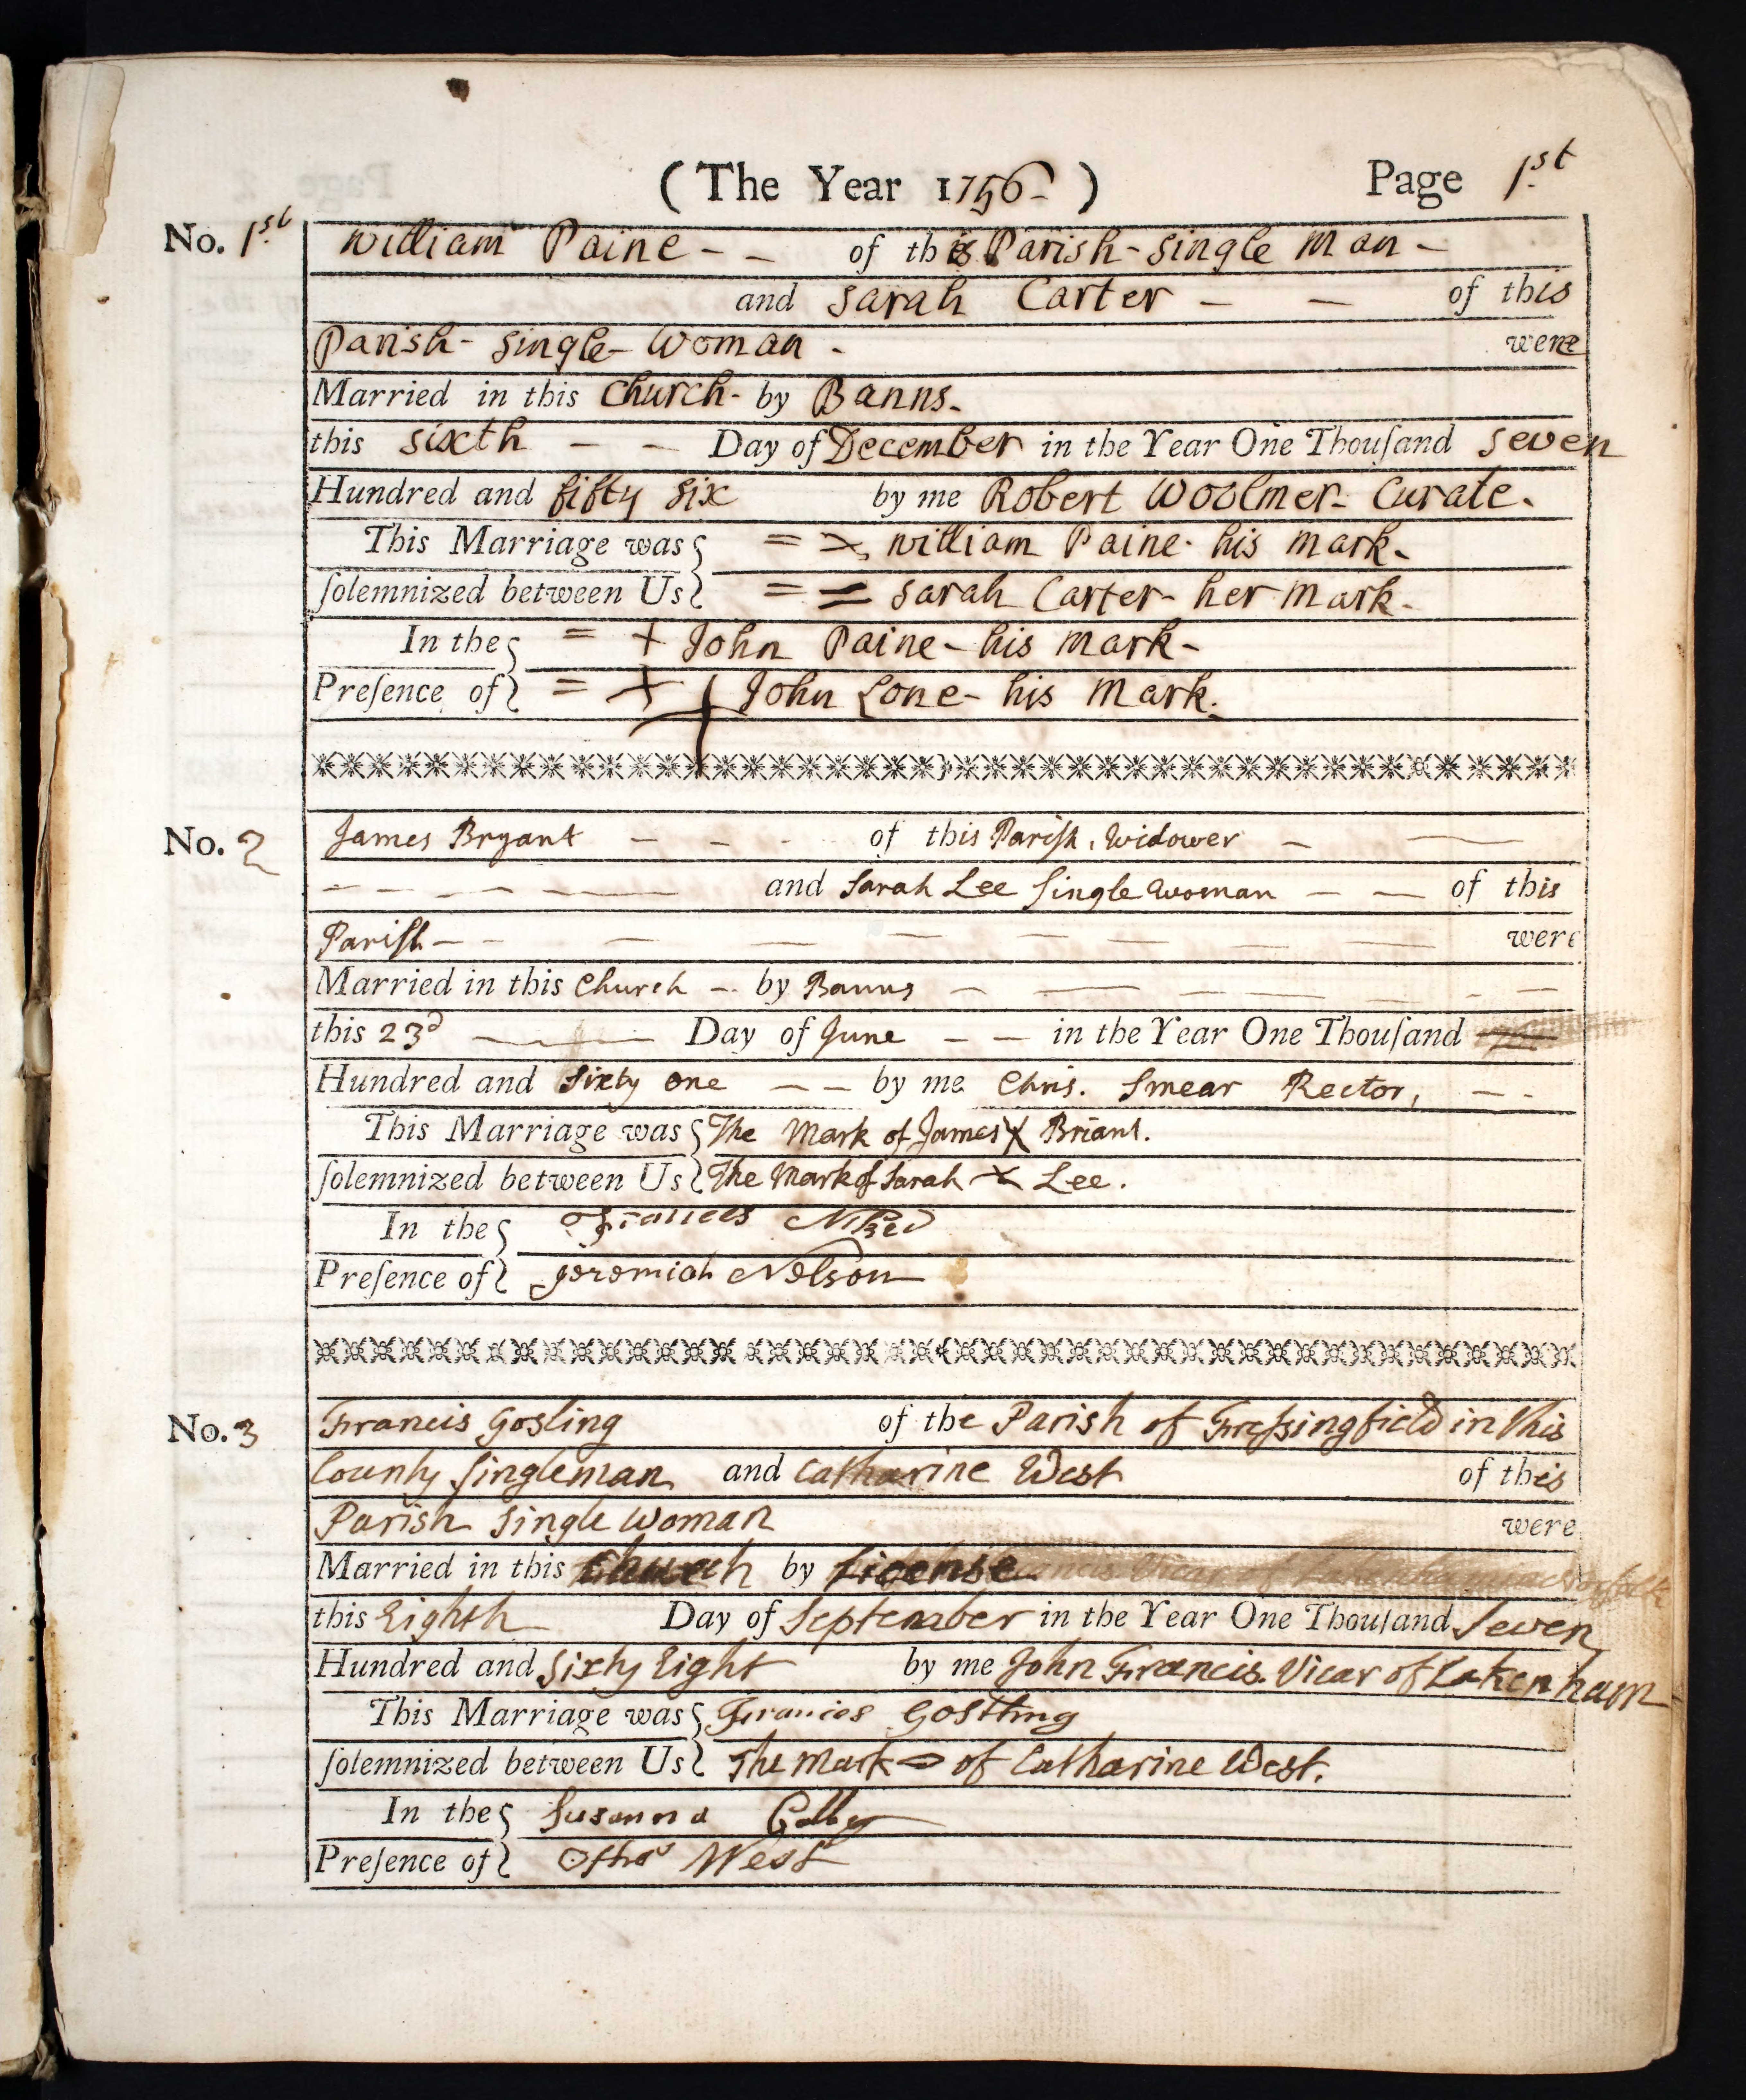 ( The Year 1756 ) Page 1st
No. 1st William Paine - - of this Parish - Single Man -
and Sarah Carter - - of this
Parish - Single - Woman - were
Married in this Church - by Banns.
this sixth - - Day of December in the Year One Thouſand Seven
Hundred and fifty six by me Robert Woolmer - Curate.
This Marriage was = X William Paine - his Mark.
ſolemnized between Us = = Sarah Carter - her Mark.
In the = + John Paine - his Mark -
Preſence of = + John Lone - his Mark.
No. 2 James Bryant - - - of this Pariſh, Widower -
- - - and Sarah Lee Single Woman - - of this
Pariſh - - were
Married in this Church - by Banns -
this 23d Day of June - - in the Year One Thouſand
Hundred and Sixty one - - by me Chris. Smear Rector, - -
This Marriage was The Mark of James X Briant.
ſolemnized between Us The Mark of Sarah X Lee.
In the Frances
Preſence of Jeremiah Nelson
No. 3 Francis Gosling of the Parish of Freſsingfield in this
County Singleman and Catharine West of this
Parish Single Woman were
Married in this Church by License
this Eighth Day of September in the Year One Thouſand Seven
Hundred and Sixty Eight by me John Francis. Vicar of Lakenham
This Marriage was Francies Gostling
ſolemnized between Us The Mark of Catharine West.
In the Susanna
Preſence of West